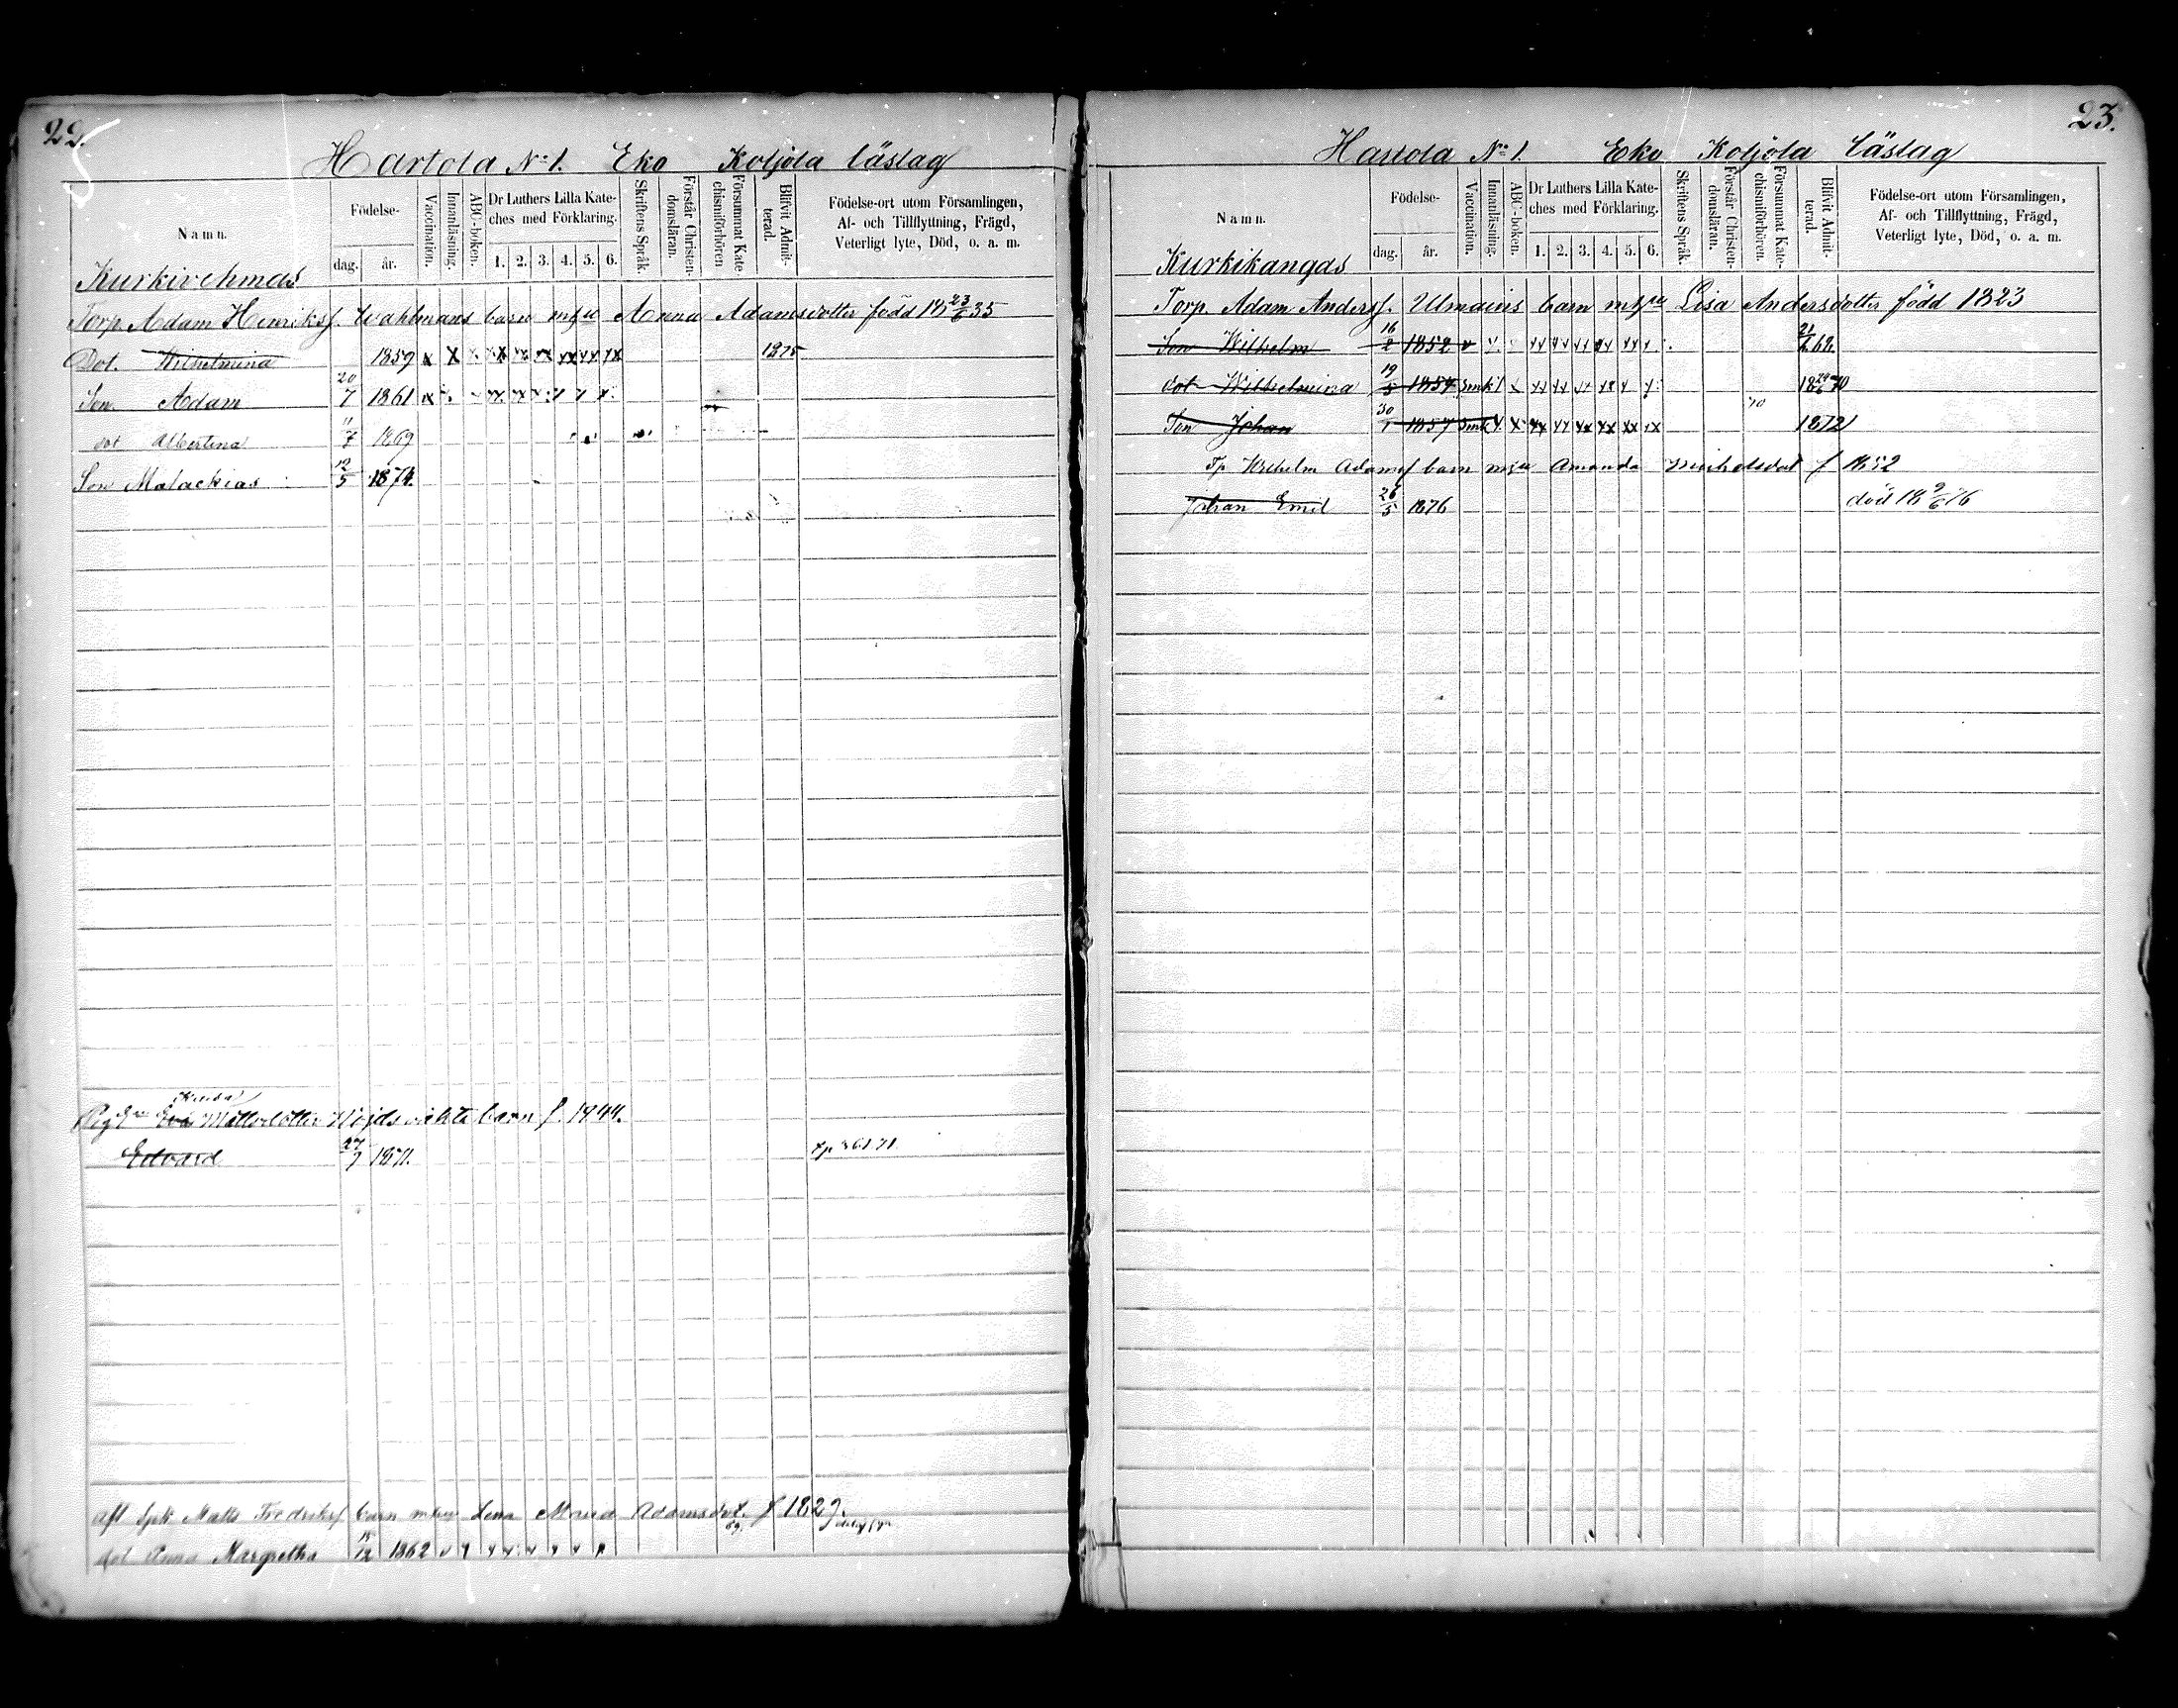 22.
Hartola No 1. Eko Koljola Läslag
Namn.
Födelse-
dag. år.
Vaccination.
Innanläsning.
ABC-boken.
Dr Luthers Lilla Kate-
ches med Förklaring.
1. 2. 3. 4. 5. 6.
Skriftens Språk.
Förstår Christen-
domsläran.
Försummat Kate-
chismiförhören
Blifvit Admit-
terad.
Födelse-ort utom Församlingen,
Af- och Tillflyttning, Frägd,
Veterligt lyte, Död, o. a. m.
Torp. Adam Henriksf. Wahlmans barn Anna Adamsdotter född 18 23/6 35
Dot. Wilhelmina 1859 1875
Son. Adam 20/7 1861
dot Albertina 11/7 1869
Son Malackias 12/5 1874.
barn f. 1844.
Edvard 27/7 1871.
Matts Fredriksf barn Lena Maria Adamsdot. f 1829.
dot Anna Margretha 15/12 1862
23.
Hartola No 1. Eko Koljola Läslag
Namn.
Födelse-
dag. år.
Vaccination.
Innanläsning.
ABC-boken.
Dr Luthers Lilla Kate-
ches med Förklaring.
1. 2. 3. 4. 5. 6.
Skriftens Språk.
Förstår Christen-
domsläran.
Försummat Kate-
chismiförhören.
Blifvit Admit-
terad.
Födelse-ort utom Församlingen,
Af- och Tillflyttning, Frägd,
Veterligt lyte, Död, o. a. m.
Kurkikangas
Torp. Adam Andersf. barn Lisa Andersdotter född 1823
Son Wilhelm 1852
dot Wilhelmina 19/5
Son Johan 30/1 1857 1872
Tp Wilhelm Adamsf barn Amanda f 1852
Johan Emil 26/5 1876 död 18 9/6 76